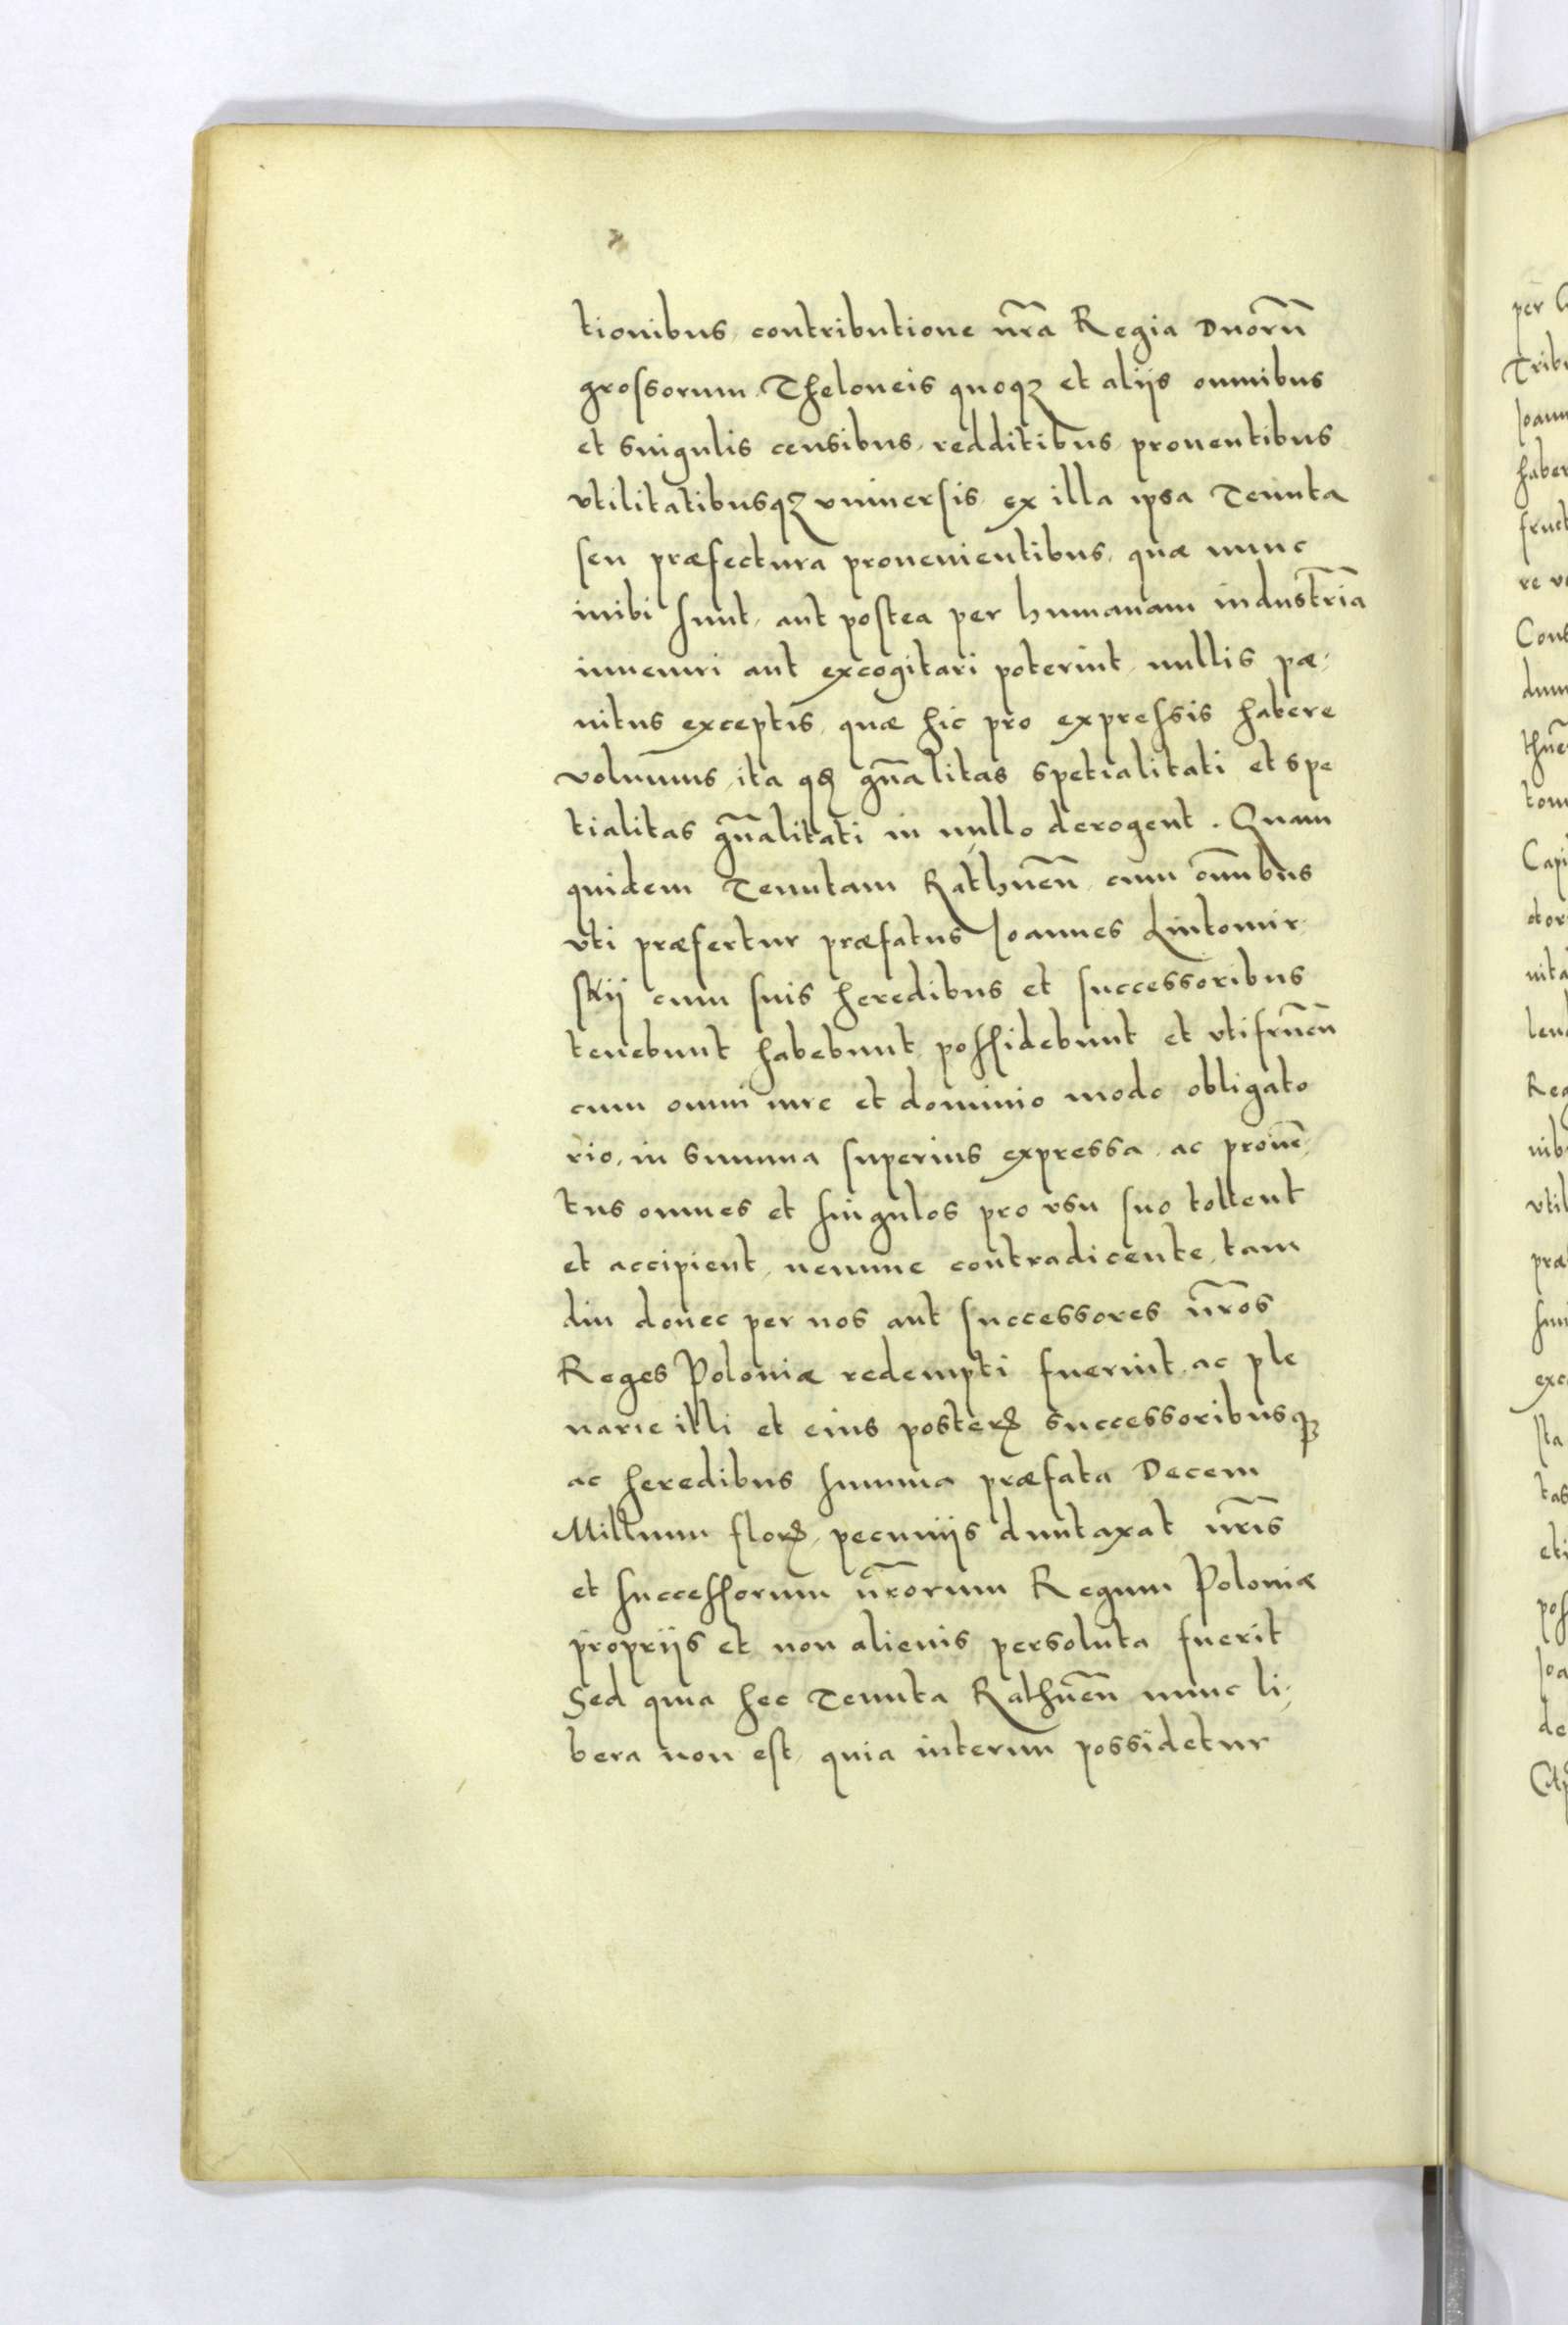 tionibus, contributione nr̃a Regia Duorũ
grossorum, Theloneis quoqz et alijs omnibus
et singulis censibus, redditibus, prouentibus
vtilitatibusqz vniuersis, ex illa ipsa Tenuta
seu præfectura prouenientibus, quæ nunc
inibi sunt, aut postea per humanam industriã
inueniri aut excogitari poterint, nullis pæ-
nitus exceptis, quæ hic pro expressis habere
volumus, ita qđ gñalitas spetialitati et spe
tialitas gñalitati in nullo derogent. Quam
quidem Tenutam Rathnẽn, cum om̃ibus
vti præfertur præfatus Ioannes Lutomir-
skij cum suis heredibus et successoribus
tenebunt habebunt possidebunt et vtifruẽn
cum omni iure et dominio modo obligato
rio, in summa superius expressa, ac prouẽ-
tus omnes et singulos pro vsu suo tollent
et accipient, nemine contradicente, tam
diu donec per nos aut successores nr̃os
Reges Poloniæ redempti fuerint, ac ple
narie illi et eius posterꝭ successoribusqz
ac heredibus summa præfata Decem
Millium florꝭ, pecunijs duntaxat nr̃is
et successorum nr̃orum Regum Poloniæ
proprijs et non alienis persoluta fuerit
Sed quia hec Tenuta Rathnẽn nunc li-
bera non est, quia interim possidetur
per
Tribu
Ioann
haber
fruct
re v
Cons
dum
thnẽ
tom
Capi
dor
nita
lend
Reg
nib
vtil
præ
sun
exc
sta
tas
eti
pos
Ioa
de